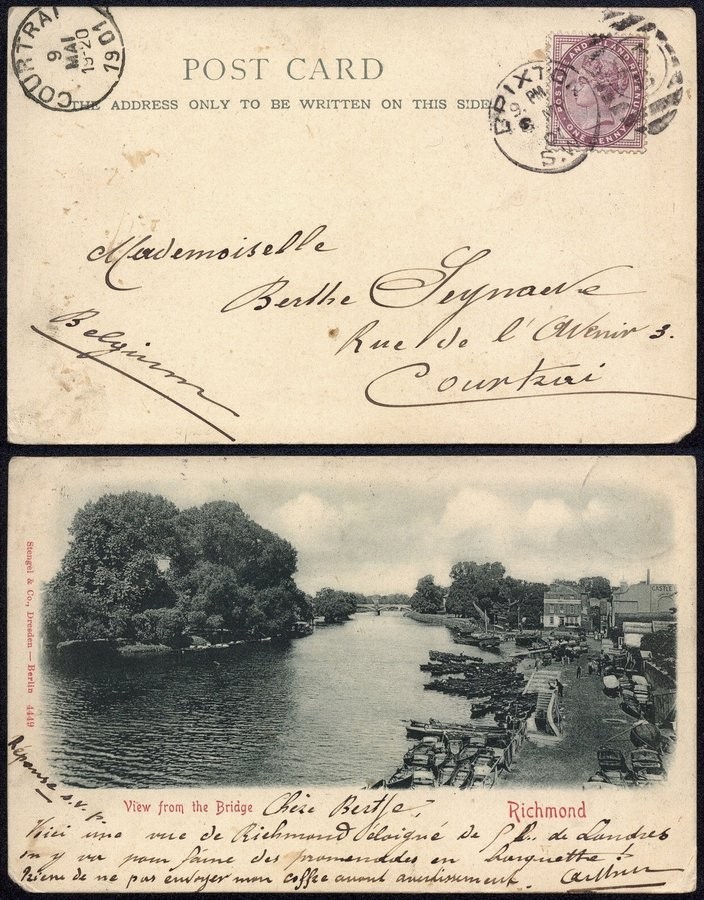 COURTRAI
9
MAI
19-20
1901
POST CARD
THE ADDRESS ONLY TO BE WRITTEN ON THIS SIDE
BRIXTON
S.W.
POSTAGE AND INLAND REVENUE
ONE PENNY
Mademoiselle
Berthe Seynaeve
Rue de l'Avenir 3.
Courtrai
Belgium
Stengel & Co., Dresden — Berlin 4449
CASTLE
Réponse s.v.p.
View from the Bridge
Richmond
Chère Berthe,
Voici une vue de Richmond éloigné de de Londres
on y va pour faire des promenades en barquette!
Prière de ne pas envoyer mon coffre avant avertissement. Arthur